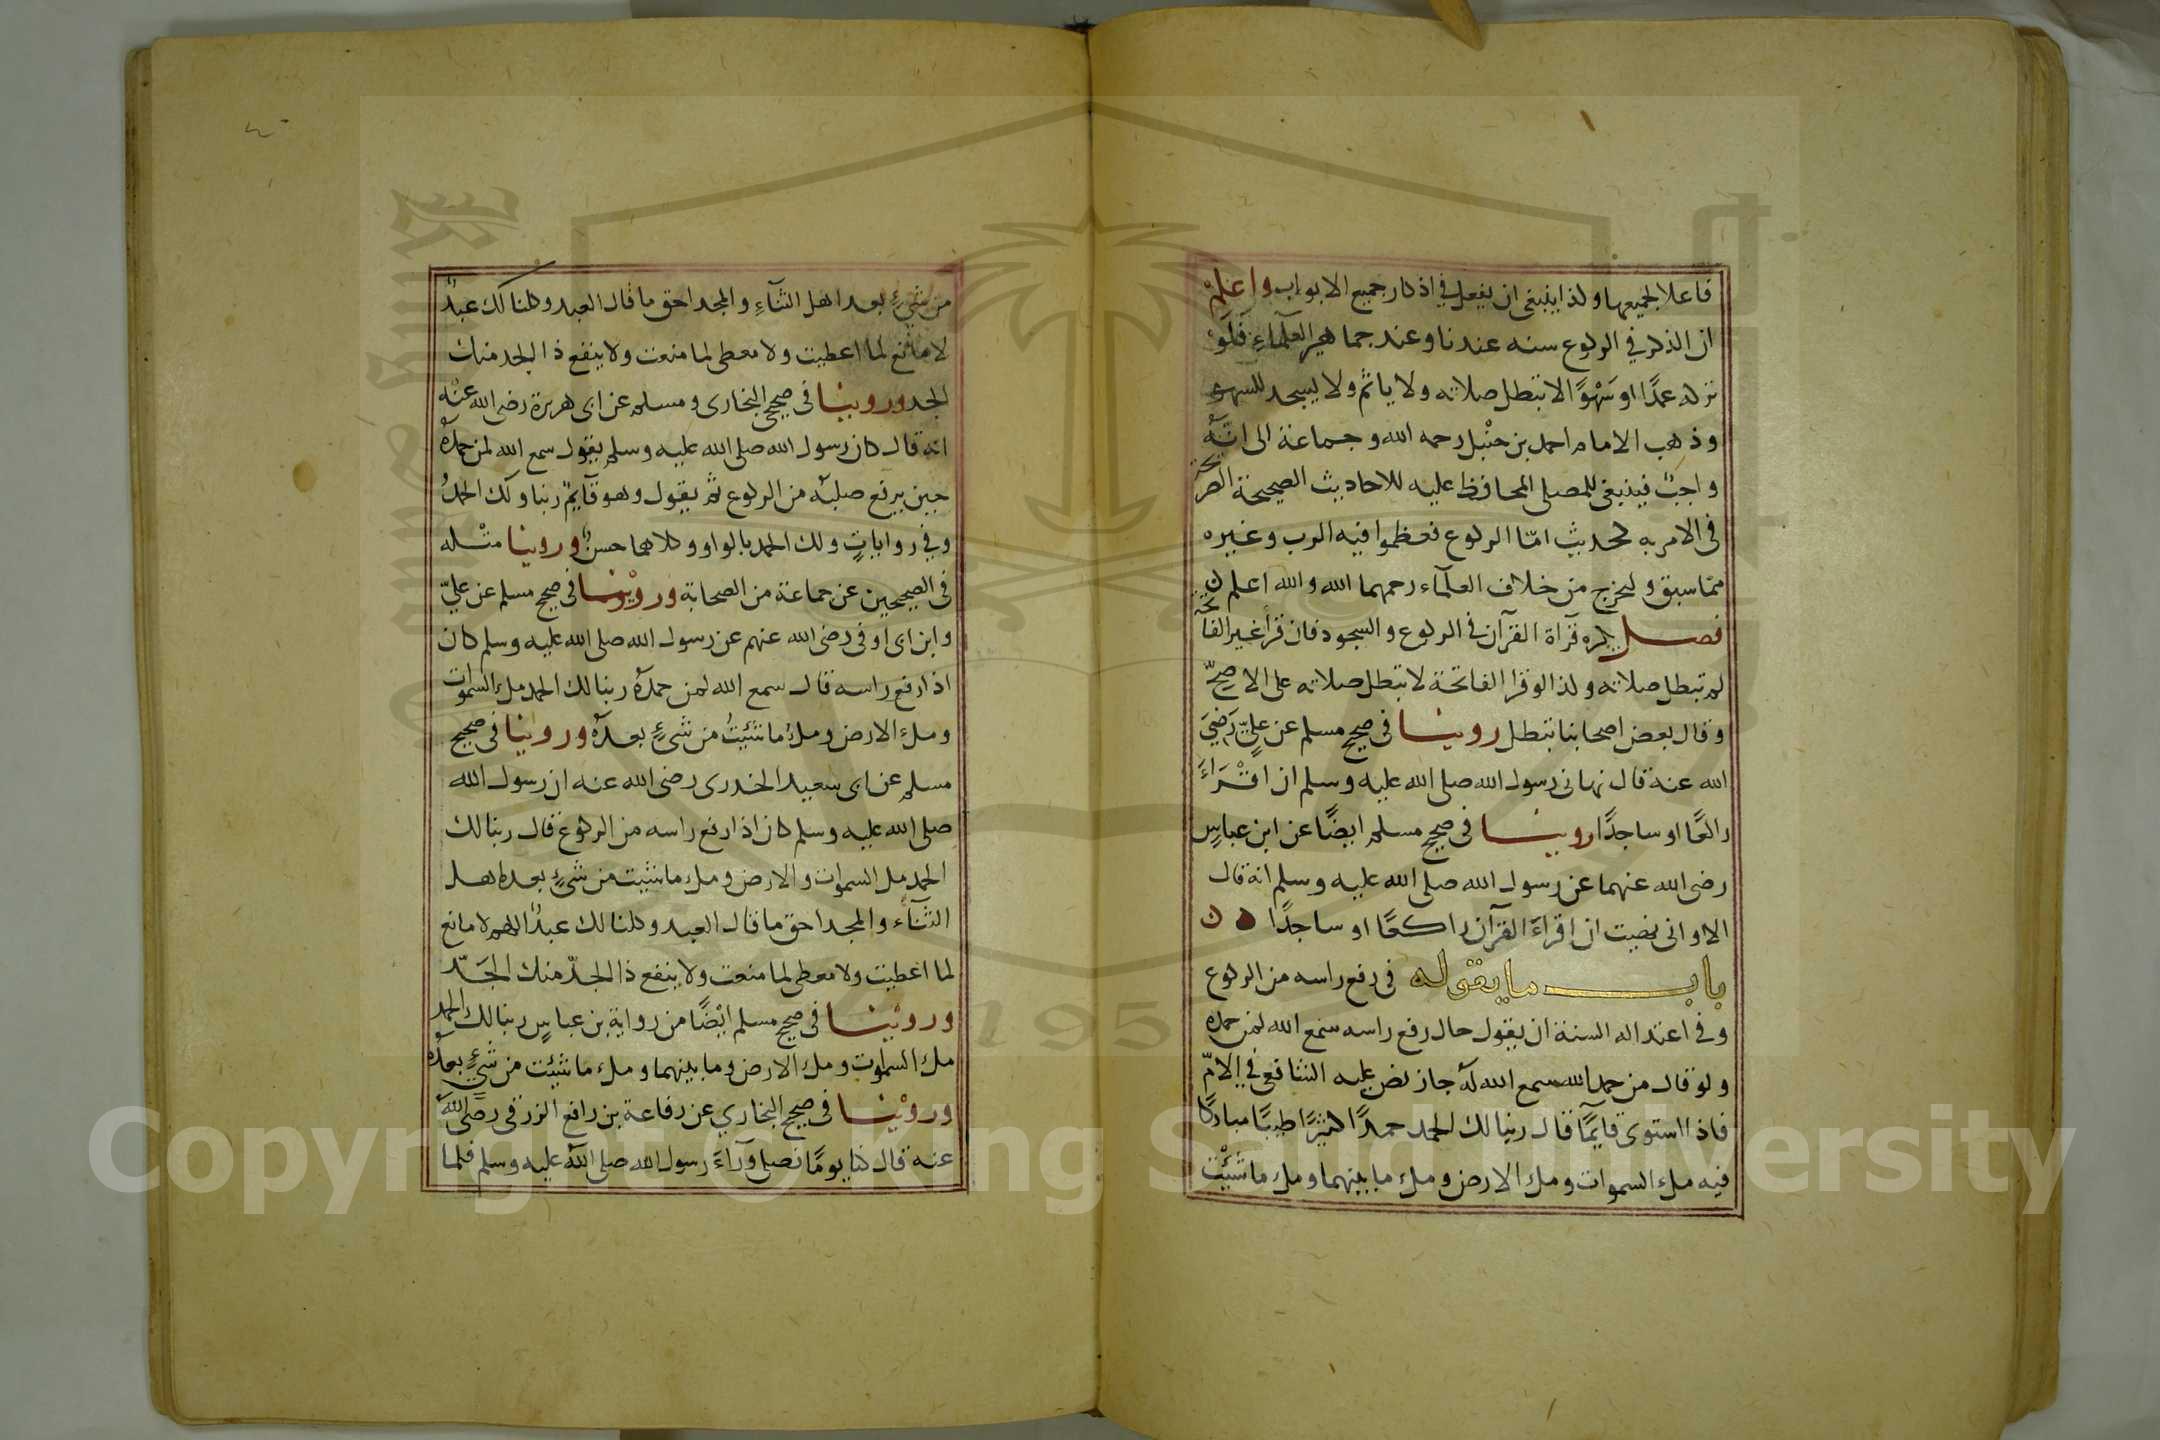 فاعلا لجميعها وكذا ينبغي ان يفعل في اذكار جميع الابواب واعلم
ان الذكر في الركوع سنه عندنا وعند جماهير العلماء فلو
تركه عمدًا او سَهْوًا لا تبطل صلاته ولا ياثم ولا يسجد للسهو
وذهب الامام احمد بن حنبل رحمه الله وجماعة الى انّه
واجب فينبغي للمصلى المحافظة عليه للاحاديث الصحيحة الصريحة
في الامر به كحديث امّا الركوع فعظموا فيه الرب وغيره
ممّا سبق وليخرج من خلاف العلماء رحمهما الله والله اعلم ن
فصل يكره قرآة القرآن في الركوع والسجود فان قرأ غير الفاتحة
لم تبطل صلاته وكذا لو قرا الفاتحة لا تبطل صلاته على الاصحّ
وقال بعض اصحابنا تبطل روينا في صحيح مسلم عن عليّ رَضيَ
الله عنه قال نهانى رسول الله صلى الله عليه وسلم ان اقْرَاءَ
راكعًا او ساجدًا روينا في صحيح مسلم ايضًا عن ابن عباسٍ
رضى الله عنهما عن رسول الله صلى الله عليه وسلم انه قال
الا وانى نهيت ان اقراءَ القرآن راكعًا او ساجدًا ه ن
باب ما يقوله في رفع راسه من الركوع
وفي اعتداله السنة ان يقول حال رفع راسه سمع الله لمن حمده
ولو قال من حمد الله سمع الله لَه جاز نص عليه الشافعي في الامّ
فاذا استوى قايمًا قال ربنا لك الحمد حمدًا كثيرًا طيبًا مباركًا
فيه ملء السموات وملء الارض وملء ما بينهما وملء ما شئت
من شيءٍ بعد اهل الثنآءِ والمجد احق ما قال العبد وكلنا لك عبدٌ
لا مانع لما اعطيت ولا معطى لما منعت ولا ينفع ذا الجد منك
الجد وروينا في صحيح البخارى ومسلم عن ابى هريرة رضى الله عنْه
انه قال كان رسول الله صلى الله عليه وسلم يقول سمع الله لمن حمدَه
حين يرفع صلبه من الركوع ثم يقول وهو قآيم ربنا ولك الحمدُ
وفي روايات ولك الحمد بالواو وكلاهما حسن وروينا مثْله
في الصحيحين عن جماعة من الصحابة ورويْنا في صحيح مسلم عن عليّ
وابن ابى اوفى رضى الله عنهم عن رسول الله صلى الله عليه وسلم كان
اذا رفع راسه قال سمع الله لمن حمدَه ربنا لك الحمد ملء السموات
وملء الارض وملءُ ما شئيتُ من شَيءٍ بعدَه وروينا في صحيح
مسلم عن ابى سعيد الخدرى رضى الله عنه ان رسول الله
صلى الله عليه وسلم كان اذا رفع راسه من الركوع قال ربنا لك
الحمد ملء السموات والارض وملء ما شئيت من شيءٍ بعده اهل
الثنآء والمجد احق ما قال العبد وكلنا لك عبدٌ اللهم لا مانع
لما اعْطيت ولا معطى لما منعت ولا ينفع ذا الجدّ منك الجَدّ
ورويْنا في صحيح مسلم ايْضًا من رواية بن عباسٍ ربنا لك الحمد
ملء السموات وملء الارض وما بينهما وملء ما شئت من شيءٍ بعدَه
ورويْنا في صحيح البخاري عن رفاعة بن رافع الزرقى رضى الله
عنه قال كنا يومًا نصلى ورآءَ رسول الله صلى الله عليه وسلم فلما
Copyright © King Saud University
1957